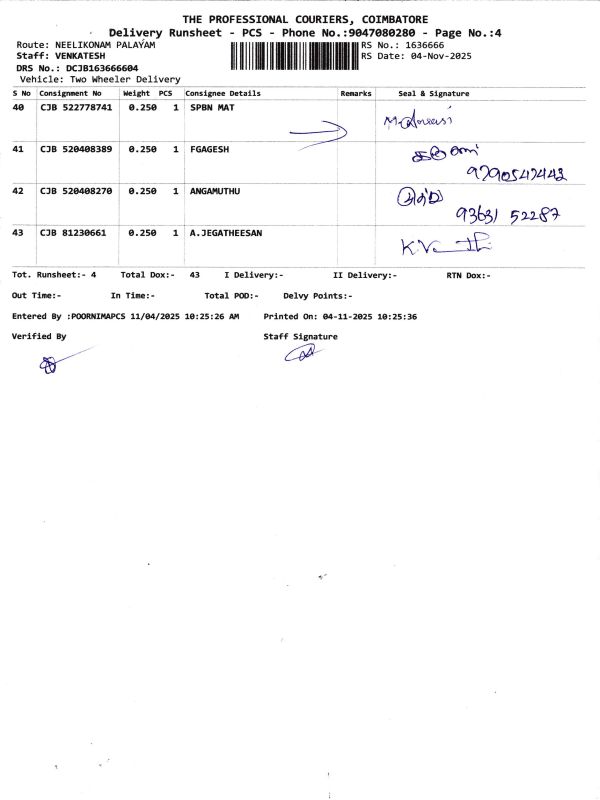 THE PROFESSIONAL COURIERS, COIMBATORE
Delivery Runsheet - PCS - Phone No.:9047080280 - Page No.:4
Route: NEELIKONAM PALAYAM RS No.: 1636666
Staff: VENKATESH RS Date: 04-Nov-2025
DRS No.: DCJB163666604
Vehicle: Two Wheeler Delivery
S No Consignment No Weight PCS Consignee Details Remarks Seal & Signature
40 CJB 522778741 0.250 1 SPBN MAT
41 CJB 520408389 0.250 1 FGAGESH
9790547443
42 CJB 520408270 0.250 1 ANGAMUTHU
93631 52287
43 CJB 81230661 0.250 1 A.JEGATHEESAN
Tot. Runsheet:- 4 Total Dox:- 43 I Delivery:- II Delivery:- RTN Dox:-
Out Time:- In Time:- Total POD:- Delvy Points:-
Entered By :POORNIMAPCS 11/04/2025 10:25:26 AM Printed On: 04-11-2025 10:25:36
Verified By Staff Signature